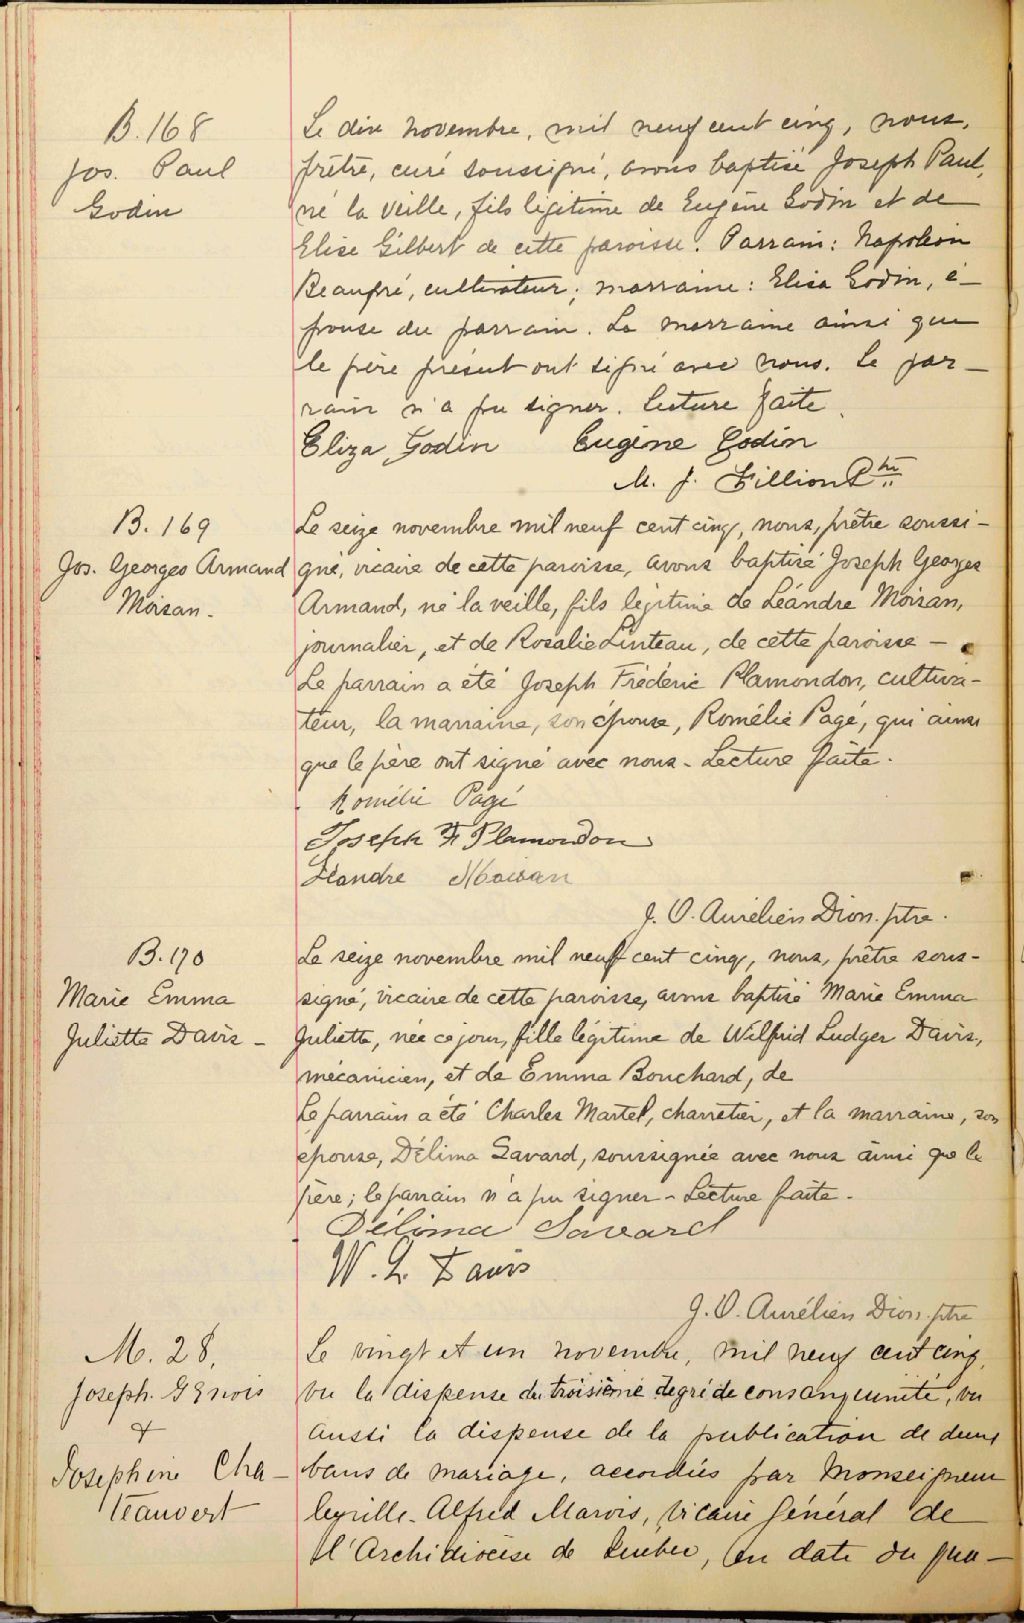 B. 168
Jos. Paul
Godin
Le dix novembre, mil neuf cent cinq, nous,
prêtre, curé soussigné, avons baptisé Joseph Paul,
né la veille, fils légitime de Eugène Godin et de
Elise Gilbert de cette paroisse. Parrain: Napoléon
Beaupré, cultivateur; marraine: Elisa Godin, é-
pouse du parrain. La marraine ainsi que
le père présent ont signé avec nous. Le par-
rain n'a pu signer. Lecture faite.
Eliza Godin Eugène Godin
M. J. Fillion Ptre
B. 169
Jos. Georges Armand
Moisan.
Le seize novembre mil neuf cent cinq, nous, prêtre soussi-
gné, vicaire de cette paroisse, avons baptisé Joseph Georges
Armand, né la veille, fils légitime de Léandre Moisan,
journalier, et de Rosalie Linteau, de cette paroisse -
Le parrain a été Joseph Frédéric Plamondon, cultiva-
teur, la marraine, son épouse, Romélie Pagé, qui ainsi
que le père ont signé avec nous - Lecture faite.
Romélie Pagé
Joseph F Plamondon
Léandre Moisan
J. O. Aurélien Dion. ptre.
B. 170
Marie Emma
Juliette Davis -
Le seize novembre mil neuf cent cinq, nous, prêtre sous-
signé, vicaire de cette paroisse, avons baptisé Marie Emma
Juliette, née ce jour, fille légitime de Wilfrid Ludger Davis,
mécanicien, et de Emma Bouchard, de
Le parrain a été Charles Martel, charretier, et la marraine, son
épouse, Délima Savard, soussignée avec nous ainsi que le
père; le parrain n'a pu signer - Lecture faite.
Délima Savard
W. L. Davis
J. O. Aurélien Dion. ptre
M. 28.
Joseph Génois
&
Josephine Cha-
teauvert
Le vingt et un novembre, mil neuf cent cinq,
vu la dispense du troisième degré de consanguinité, vu
aussi la dispense de la publication de deux
bans de mariage, accordés par Monseigneur
Cyrille-Alfred Marois, Vicaire Général de
l'Archidiocèse de Québec, en date du qua-